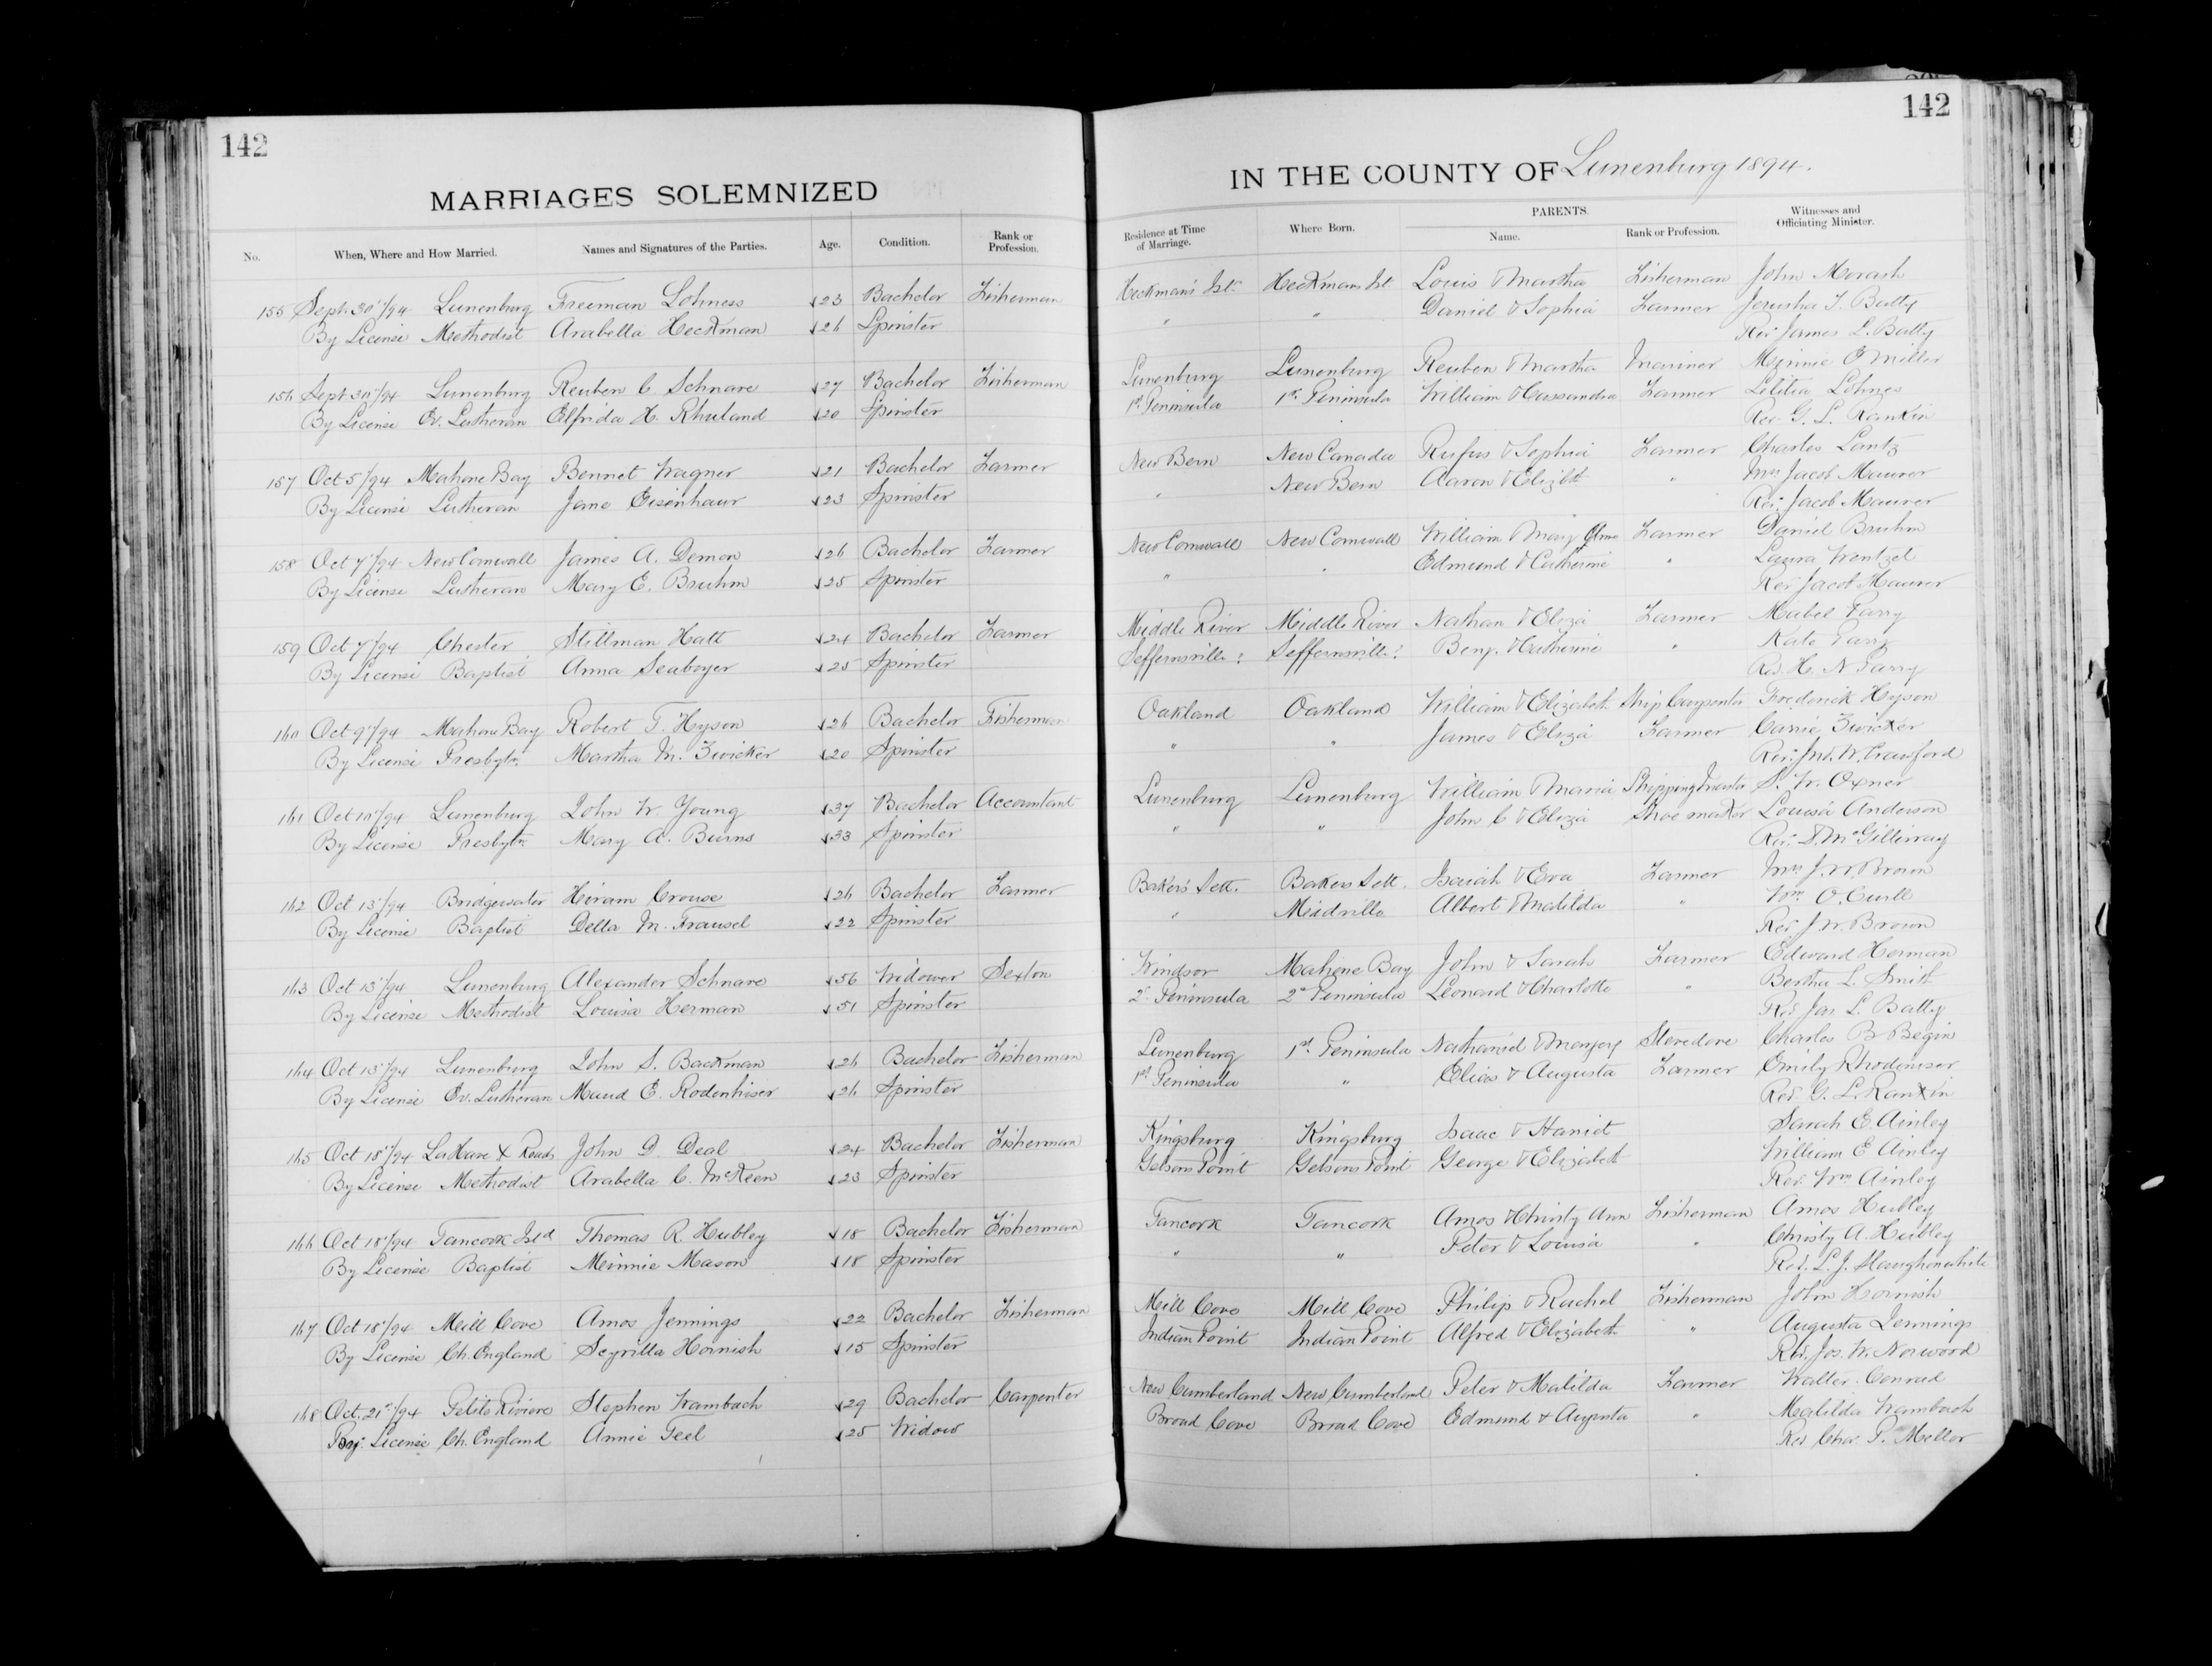 142
142
MARRIAGES SOLEMNIZED
IN THE COUNTY OF Lunenburg 1894.
No. When, Where and How Married. Names and Signatures of the Parties. Age. Condition. Rank or Profession. Residence at Time of Marriage. Where Born. PARENTS. Name. Rank or Profession. Witnesses and Officiating Minister.
155 Sept. 30/94 Lunenburg Freeman Lohness 23 Bachelor Fisherman Heckman's Isl. Heckmans Isl Louis & Martha Fisherman John Morash
By License Methodist Arabella Heckman 26 Spinster " " Daniel & Sophia Farmer Jerusha T. Batty
Rev. James L. Batty
156 Sept 30/94 Lunenburg Reuben C Schnare 27 Bachelor Fisherman Lunenburg Lunenburg Reuben & Martha Mariner Minnie O Miller
By License Ev. Lutheran Elfrida H. Rhuland 20 Spinster 1st Peninsula 1st Peninsula William & Cassandra Farmer Letitia Lohnes
Rev. G. L. Rankin
157 Oct 5/94 Mahone Bay Bennet Wagner 21 Bachelor Farmer New Bern New Canada Rufus & Sophia Farmer Charles Lantz
By License Lutheran Jane Eisenhaur 23 Spinster " New Bern Aaron & Elizbth " Mrs Jacob Maurer
Rev. Jacob Maurer
158 Oct 7/94 New Cornwall James A. Demon 26 Bachelor Farmer New Cornwall New Cornwall William & Mary Ann Farmer Daniel Bruhm
By License Lutheran Mary E. Bruhm 25 Spinster " " Edmund & Catherine " Laura Wentzel
Rev Jacob Maurer
159 Oct 7/94 Chester Stillman Hatt 24 Bachelor Farmer Middle River Middle River Nathan & Eliza Farmer Mabel Parry
By License Baptist Anna Seaboyer 25 Spinster Seffernsville? Seffernsville? Benj. & Catherine " Kate Parry
Rev. H. N Parry
160 Oct 9/94 Mahone Bay Robert T. Hyson 26 Bachelor Fisherman Oakland Oakland William & Elizabeth Ship Carpenter Frederick Hyson
By License Presbytn. Martha M. Zwicker 20 Spinster " " James & Eliza Farmer Carrie Zwicker
Rev. Jno. W. Crawford
161 Oct 10/94 Lunenburg John W. Young 37 Bachelor Accountant Lunenburg Lunenburg William & Maria Shipping Master S. W. Oxner
By License Presbytn. Mary A. Burns 33 Spinster " " John C & Eliza Shoe maker Louisa Anderson
Rev. D. McGillivray
162 Oct 13/94 Bridgewater Hiram Crouse 26 Bachelor Farmer Baker's Sett. Bakers Sett. Isaiah & Eva Farmer Mrs J. W. Brown
By License Baptist Della M. Frausel 22 Spinster " Maidville Albert & Matilda " Wm. O. Curll
Rev. J. W. Brown
163 Oct 13/94 Lunenburg Alexander Schnare 56 Widower Sexton Windsor Mahone Bay John & Sarah Farmer Edward Herman
By License Methodist Louisa Herman 51 Spinster 2d Peninsula 2d Peninsula Leonard & Charlotte " Bertha L. Smith
Rev Jas L. Batty
164 Oct 13/94 Lunenburg John S. Backman 26 Bachelor Fisherman Lunenburg 1st Peninsula Nathaniel & Margery Stevedore Charles B Begin
By License Ev. Lutheran Maud E. Rodenhiser 26 Spinster 1st Peninsula " Elias & Augusta Farmer Emily Rhodeniser
Rev. G. L. Rankin
165 Oct 18/94 LaHave X Roads John D. Deal 24 Bachelor Fisherman Kingsburg Kingsburg Isaac & Harriet Sarah E. Ainley
By License Methodist Arabella C. McKeen 23 Spinster Getsons Point Getsons Point George & Elizabeth William E Ainley
Rev. Wm Ainley
166 Oct 18/94 Tancook Isld Thomas R. Hubley 18 Bachelor Fisherman Tancook Tancook Amos & Christy Ann Fisherman Amos Hubley
By License Baptist Minnie Mason 18 Spinster " " Peter & Louisa " Christy A. Hubley
Rev. L. J. Slaughenwhite
167 Oct 18/94 Mill Cove Amos Jennings 22 Bachelor Fisherman Mill Cove Mill Cove Philip & Rachel Fisherman John Hornish
By License Ch. England Seyrilla Hornish 15 Spinster Indian Point Indian Point Alfred & Elizabeth " Augusta Jennings
Rev. Jos. W. Norwood
168 Oct. 21/94 Petite Riviere Stephen Wambach 29 Bachelor Carpenter New Cumberland New Cumberland Peter & Matilda Farmer Walter Conrad
By License Ch. England Annie Teel 25 Widow Broad Cove Broad Cove Edmund & Augusta " Matilda Wambach
Rev Chas. P. Mellor